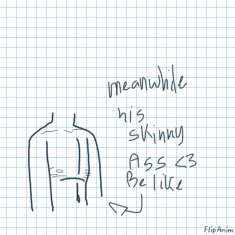 meanwhile
his
skinny
Ass <3
Be like
FlipAnim